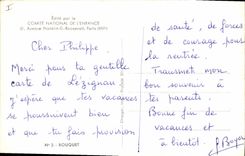 I
Édité par le
COMITÉ NATIONAL DE L'ENFANCE
51, Avenue Franklin-D.-Roosevelt, Paris (VIIIe)
Cher Philippe
Merci pour ta gentille
carte de Lézignan
J'espère que tes vacances
se poursuivent bien
et que tu fais provision
N° 3 - BOUQUET
de santé, de forces
et de courage pour
la rentrée.
Transmet mon
bon souvenir à
tes parents.
Bonne fin de
vacances et
à bientôt.
Boyer